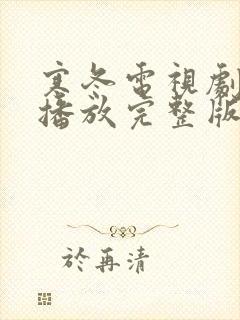 寒冬電視劇
播放完整版
於再清